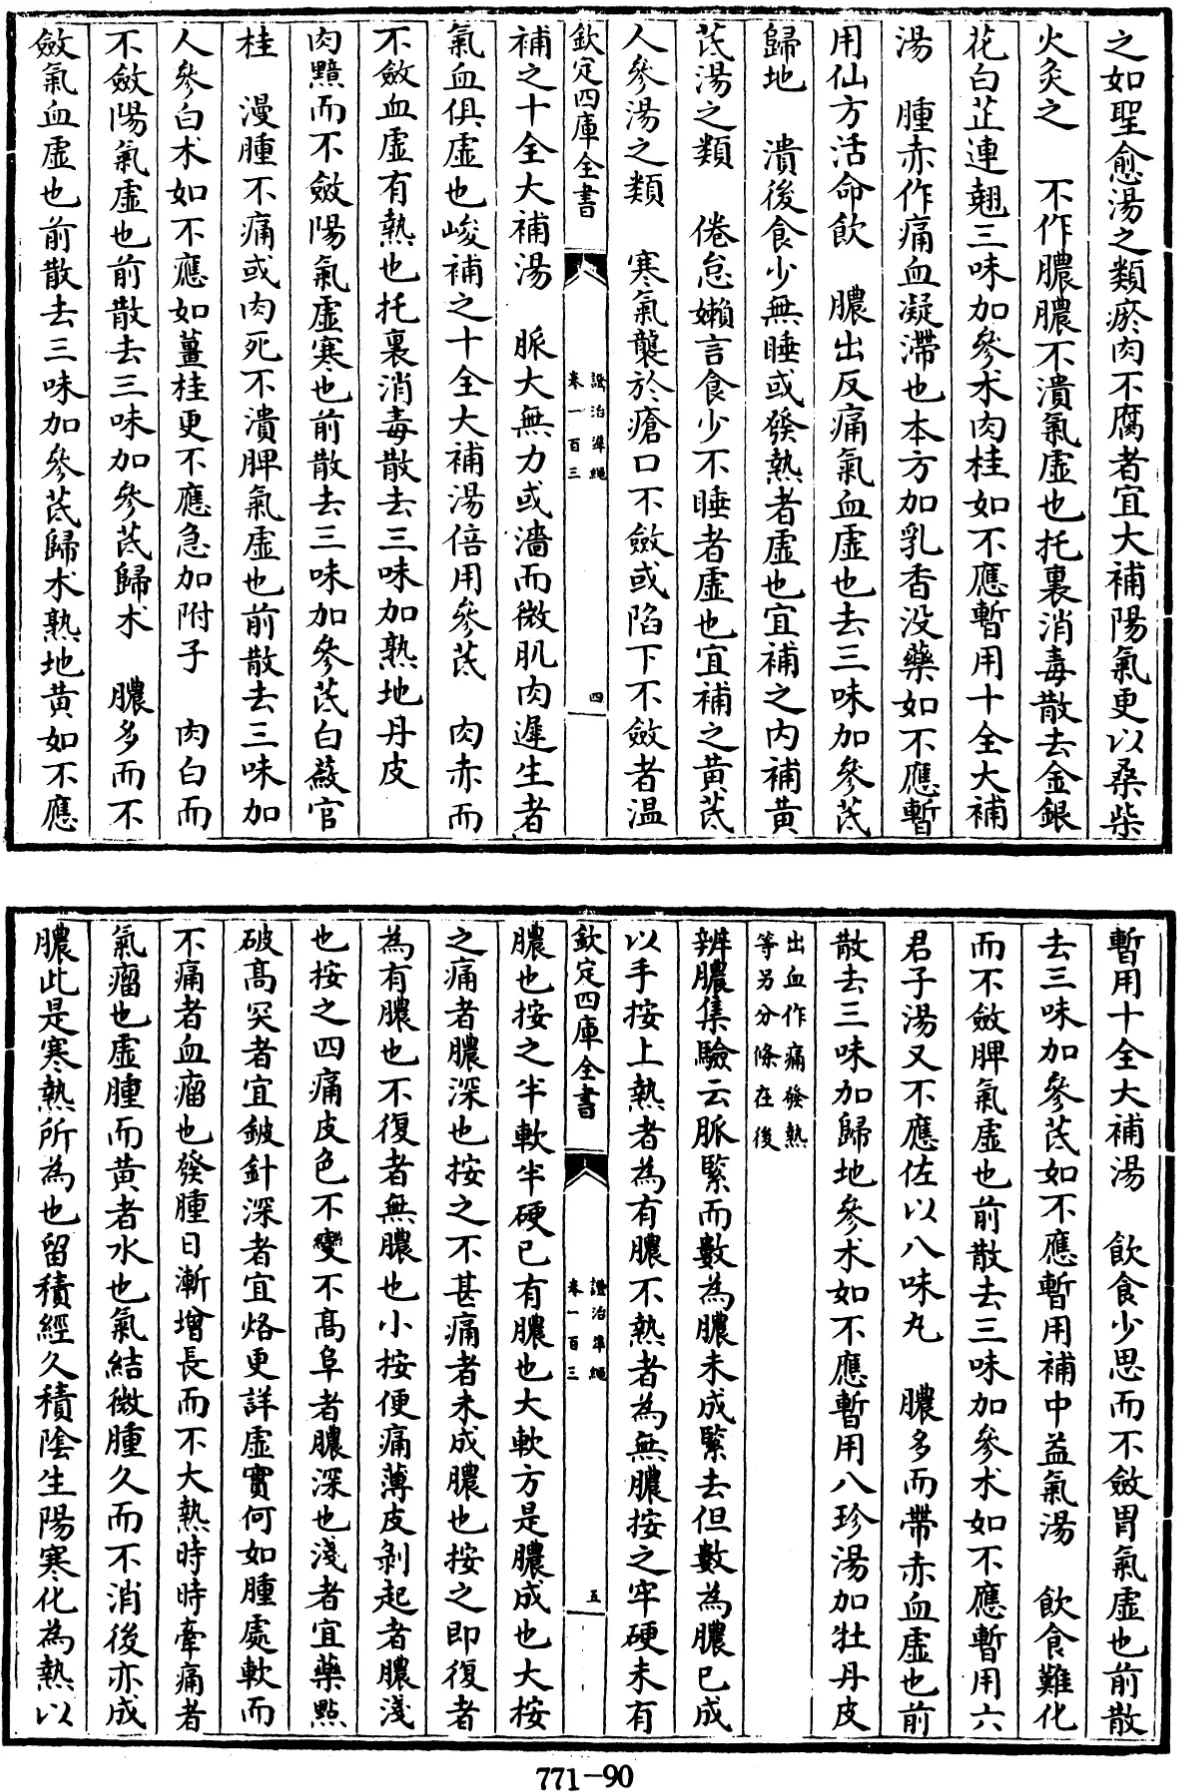 之如聖愈湯之類瘀肉不腐者宜大補陽氣更以桑柴
火灸之　不作膿膿不潰氣虛也托裏消毒散去金銀
花白芷連翹三味加參术肉桂如不應暫用十全大補
湯　腫赤作痛血凝滯也本方加乳香没藥如不應暫
用仙方活命飲　膿出反痛氣血虛也去三味加參芪
歸地　潰後食少無睡或發熱者虛也宜補之内補黄
芪湯之類　倦怠嬾言食少不睡者虛也宜補之黄芪
人參湯之類　寒氣襲於瘡口不斂或陷下不斂者温
欽定四庫全書
證治準繩
卷一百三
四
補之十全大補湯　脈大無力或濇而微肌肉遲生者
氣血俱虛也峻補之十全大補湯倍用參芪　肉赤而
不斂血虛有熱也托裏消毒散去三味加熟地丹皮
肉黯而不斂陽氣虛寒也前散去三味加參芪白蘞官
桂　漫腫不痛或肉死不潰脾氣虛也前散去三味加
人參白术如不應如薑桂更不應急加附子　肉白而
不斂陽氣虛也前散去三味加參芪歸术　膿多而不
斂氣血虛也前散去三味加參芪歸术熟地黄如不應
暫用十全大補湯　飲食少思而不斂胃氣虛也前散
去三味加參芪如不應暫用補中益氣湯　飲食難化
而不斂脾氣虛也前散去三味加參术如不應暫用六
君子湯又不應佐以八味丸　膿多而帶赤血虛也前
散去三味加歸地參术如不應暫用八珍湯加牡丹皮
出血作痛發熱
等另分條在後
辨膿集驗云脈緊而數為膿未成緊去但數為膿已成
以手按上熱者為有膿不熱者為無膿按之牢硬未有
欽定四庫全書
證治準繩
卷一百三
五
膿也按之半軟半硬已有膿也大軟方是膿成也大按
之痛者膿深也按之不甚痛者未成膿也按之即復者
為有膿也不復者無膿也小按便痛薄皮剝起者膿淺
也按之四痛皮色不變不高阜者膿深也淺者宜藥點
破高突者宜鈹針深者宜烙更詳虛實何如腫處軟而
不痛者血瘤也發腫日漸增長而不大熱時時牽痛者
氣瘤也虛腫而黄者水也氣結微腫久而不消後亦成
膿此是寒熱所為也留積經久積陰生陽寒化為熱以
771-90